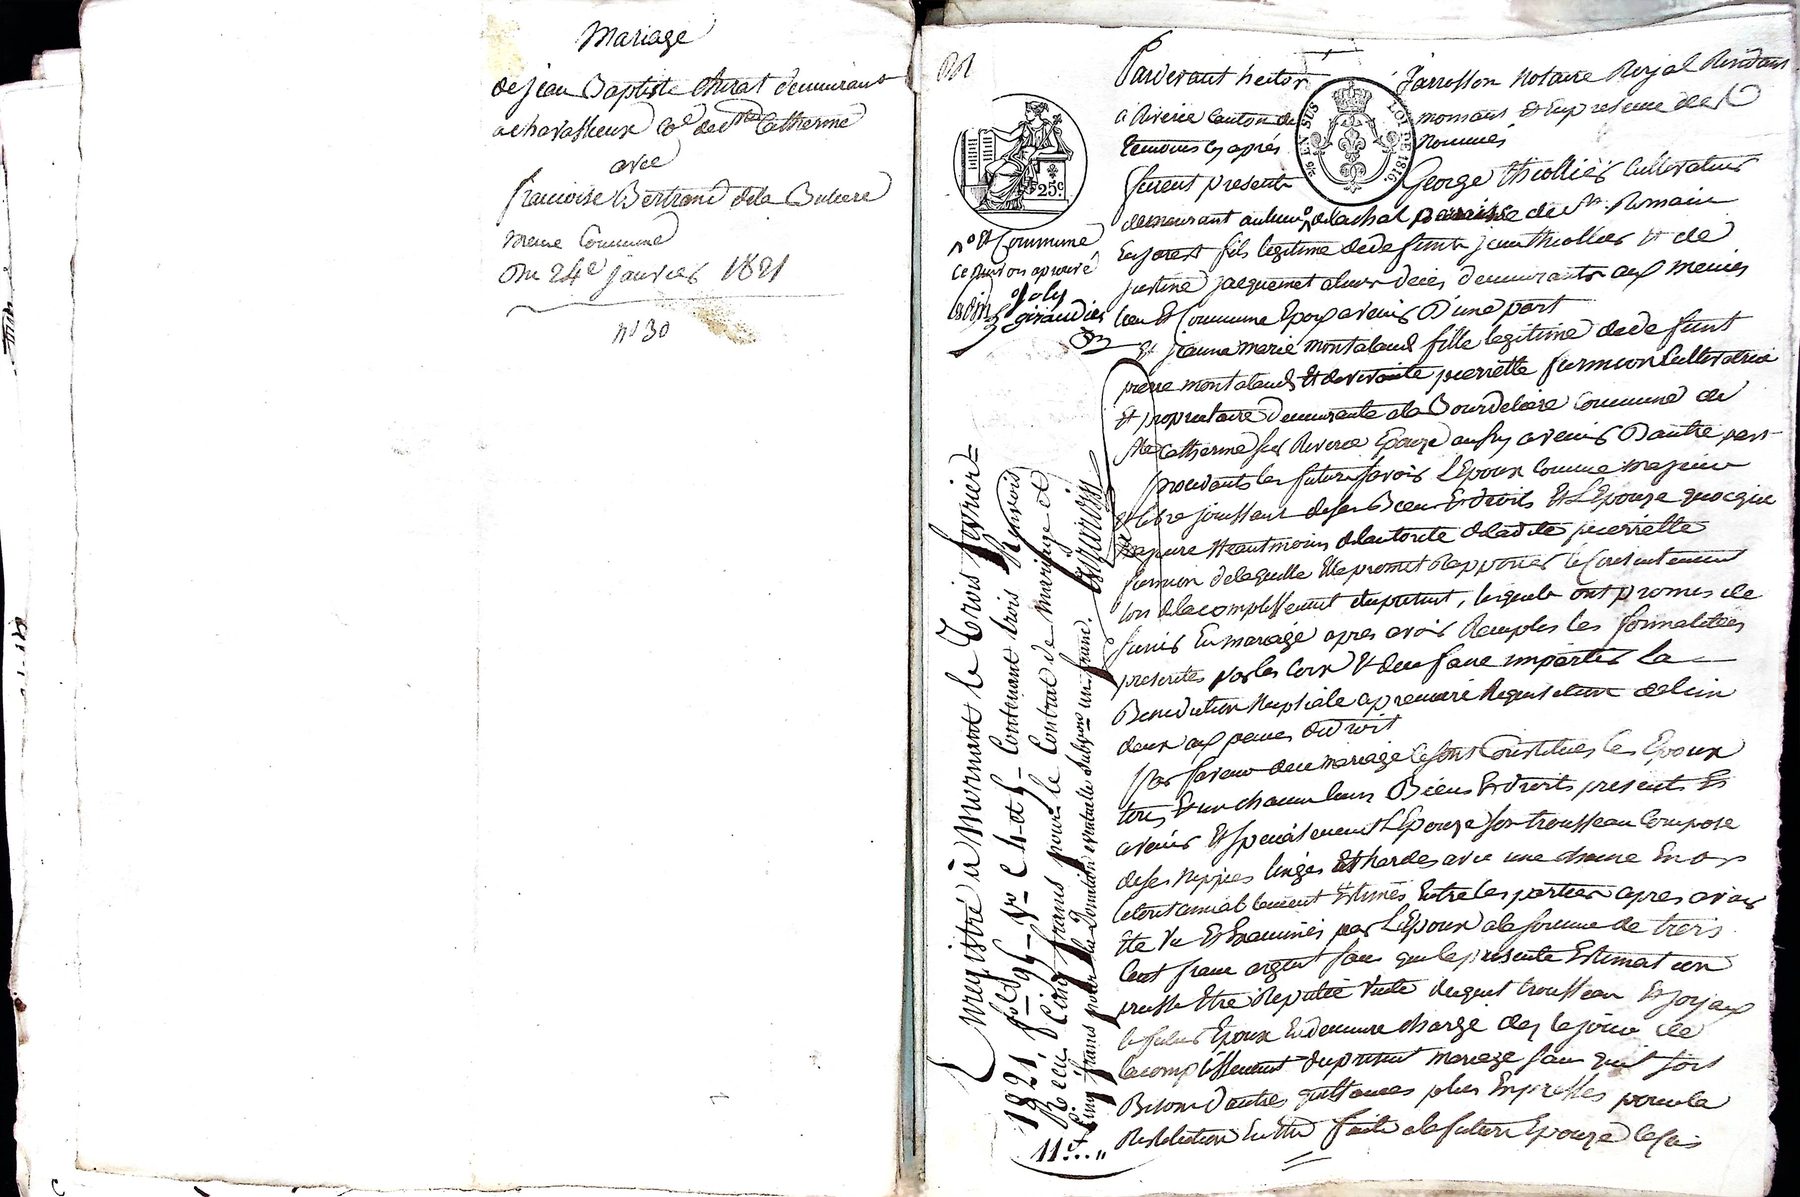 Mariage
de jean Baptiste Murat demeurant
a chavassieux Ce de Ste Catherine
avec
francoise Bertrand de la Buliere
meme Commune
Du 24e janvier 1821
no 30
Pardevant hector Jarrosson Notaire Royal Résidant
a Riverie Canton de mornant et en presence des
temoins cy après Nommés
furent presents George thiollier Cultivateur
demeurant au lieu de lachal de St Romain
En jarest fils legitime de defunt jean thiollier et de
justine jacquemet a leur decès demeurants aux memes
lieu et Commune Epoux avenir D'une part
Et jeanne marie montaland fille legitime de defunt
pierre montaland et de vivante pierrette furnion Cultivatrice
et proprietaire demeurante a la Bourdeliere Commune de
Ste Catherine sur Riverie Epouze aussy avenir D'autre part
procedants les futurs savoir L'Epoux Comme majeur
et libre jouissant de ses Biens et droits et L'Epouze quoique
majeure neantmoins de l'autorité de ladite pierrette
furnion de laquelle Elle promet Rapporter le Consentement
lors de l'acomplissement du present, lesquels ont promis de
s'unir En mariage apres avoir Remplis les formalitées
prescrites par les Loix et de se faire impartir La
Benediction Nuptiale a premiere Requisition de l'un
deux aux peines du droit
par faveur de ce mariage se sont Constitués les Epoux
tous et un chacun leurs Biens et droits presents et
avenir et specialement L'Epouze son trousseau Composé
de ses nippes linges et hardes avec une chaine En or
le tout amiablement Estimés Entre les parties apres avoir
été Vu et Examinés par L'Epoux a la somme de trois
Cent franc argent sans que la presente Estimation
puisse Etre Reputée Vente duquel trousseau et joyaux
le futur Epoux En demeure chargé des le jour de
l'acomplissement du present mariage sans qu'il soit
Besoin d'autres quittances plus Expresses pour la
Restitution En Etre faite a la future Epouze le cas
25c
EN SUS
LOI DE 1816.
et Commune
ce Renvoi aprouvé
joly
giraudier
Enregistré à Mornant le trois février
1821, fo 96 Vo C 4 et 5 Contenant trois Renvois
Recu Cinq francs pour le Contrat de mariage et
Cinq francs pour la Donation eventuelle subvon un franc.
11f...